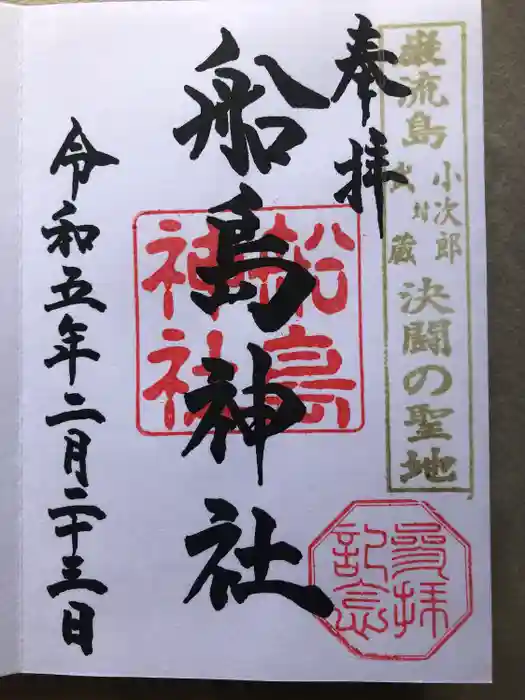 巌流島 小次郎 対 武蔵 決闘の聖地
奉拝
船島神社
船島神社
参拝記念
令和五年二月二十三日